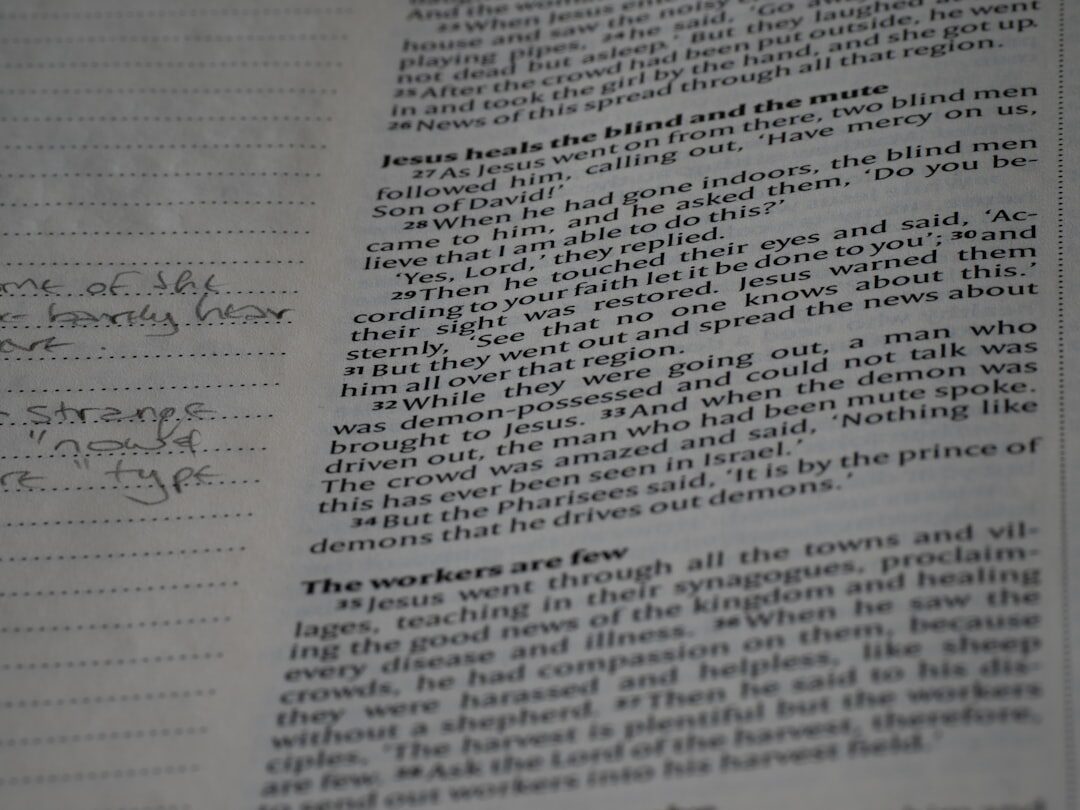 And the woman
23 When Jesus
house and saw the noisy
playing pipes, 24 he said, 'Go
not dead but asleep.' But they laughed
25 After the crowd had been put outside, he went
in and took the girl by the hand, and she got up.
26 News of this spread through all that region.
Jesus heals the blind and the mute
27 As Jesus went on from there, two blind men
followed him, calling out, 'Have mercy on us,
Son of David!'
28 When he had gone indoors, the blind men
came to him, and he asked them, 'Do you be-
lieve that I am able to do this?'
'Yes, Lord,' they replied.
29 Then he touched their eyes and said, 'Ac-
cording to your faith let it be done to you'; 30 and
their sight was restored. Jesus warned them
sternly, 'See that no one knows about this.'
31 But they went out and spread the news about
him all over that region.
32 While they were going out, a man who
was demon-possessed and could not talk was
brought to Jesus. 33 And when the demon was
driven out, the man who had been mute spoke.
The crowd was amazed and said, 'Nothing like
this has ever been seen in Israel.'
34 But the Pharisees said, 'It is by the prince of
demons that he drives out demons.'
The workers are few
35 Jesus went through all the towns and vil-
lages, teaching in their synagogues, proclaim-
ing the good news of the kingdom and healing
every disease and illness. 36 When he saw the
crowds, he had compassion on them, because
they were harassed and helpless, like sheep
without a shepherd. 37 Then he said to his dis-
ciples, 'The harvest is plentiful but the workers
are few. 38 Ask the Lord of the harvest, therefore,
to send out workers into his harvest field.'
of the
barely hear
strange
type